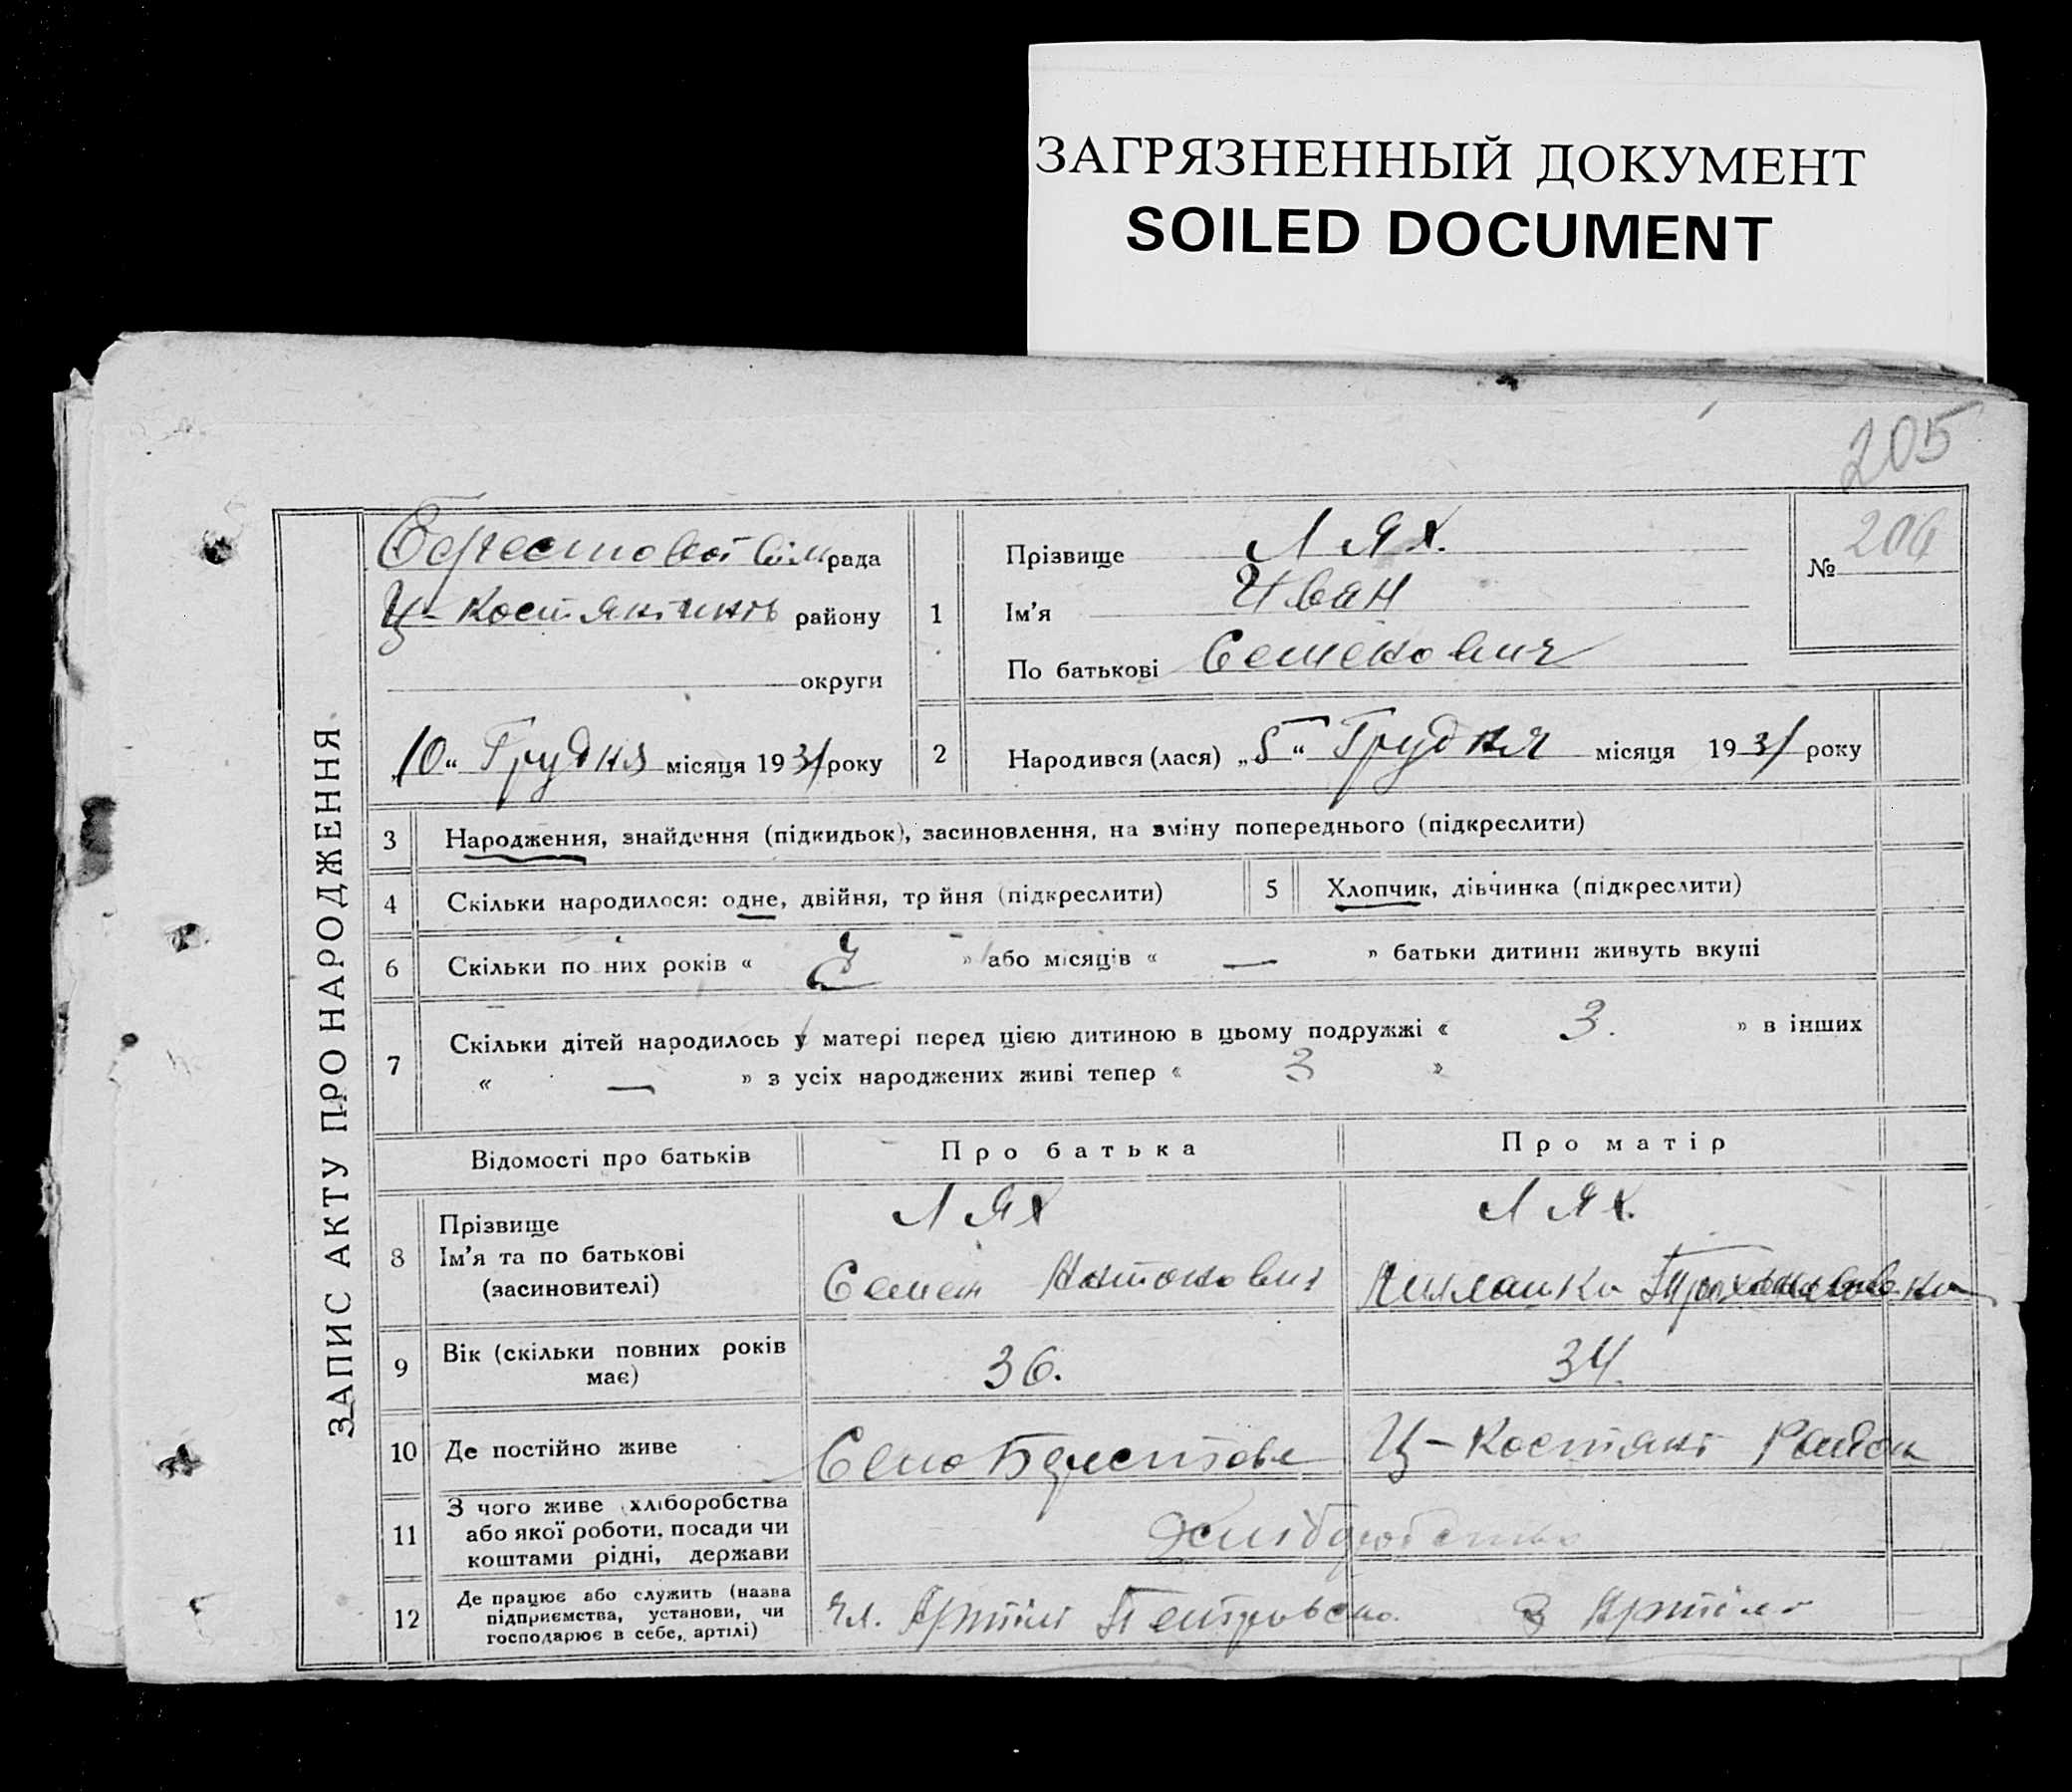 ЗАГРЯЗНЕННЫЙ ДОКУМЕНТ
SOILED DOCUMENT
205
ЗАПИС АКТУ ПРО НАРОДЖЕННЯ
Берестової Сіль рада
Ц-Костянтинів району
округи
„10“ Грудня місяця 1931 року
1
Прізвище Лях.
Ім'я Иван
По батькові Семенович
№ 206
2
Народився (лася) „5“ Грудня місяця 1931 року
3 Народження, знайдення (підкидьок), засиновлення, на зміну попереднього (підкреслити)
4 Скільки народилося: одне, двійня, тр йня (підкреслити)
5 Хлопчик, дівчинка (підкреслити)
6 Скільки по них років « » або місяців « — » батьки дитини живуть вкупі
7 Скільки дітей народилось у матері перед цією дитиною в цьому подружжі « 3. » в інших
« — » з усіх народжених живі тепер « 3 »
Відомості про батьків Про батька Про матір
8 Прізвище
Ім'я та по батькові
(засиновителі)
Лях
Семен Антонович
Лях.
9 Вік (скільки повних років
має)
36.
34.
10 Де постійно живе
Село Берестове Ц-Костянт Район
11 З чого живе (хліборобства
або якої роботи, посади чи
коштами рідні, держави
Хліборобство
12 Де працює або служить (назва
підприємства, установи, чи
господарює в себе, артілі)
Чл. Артілі Петровсько. В Артілі